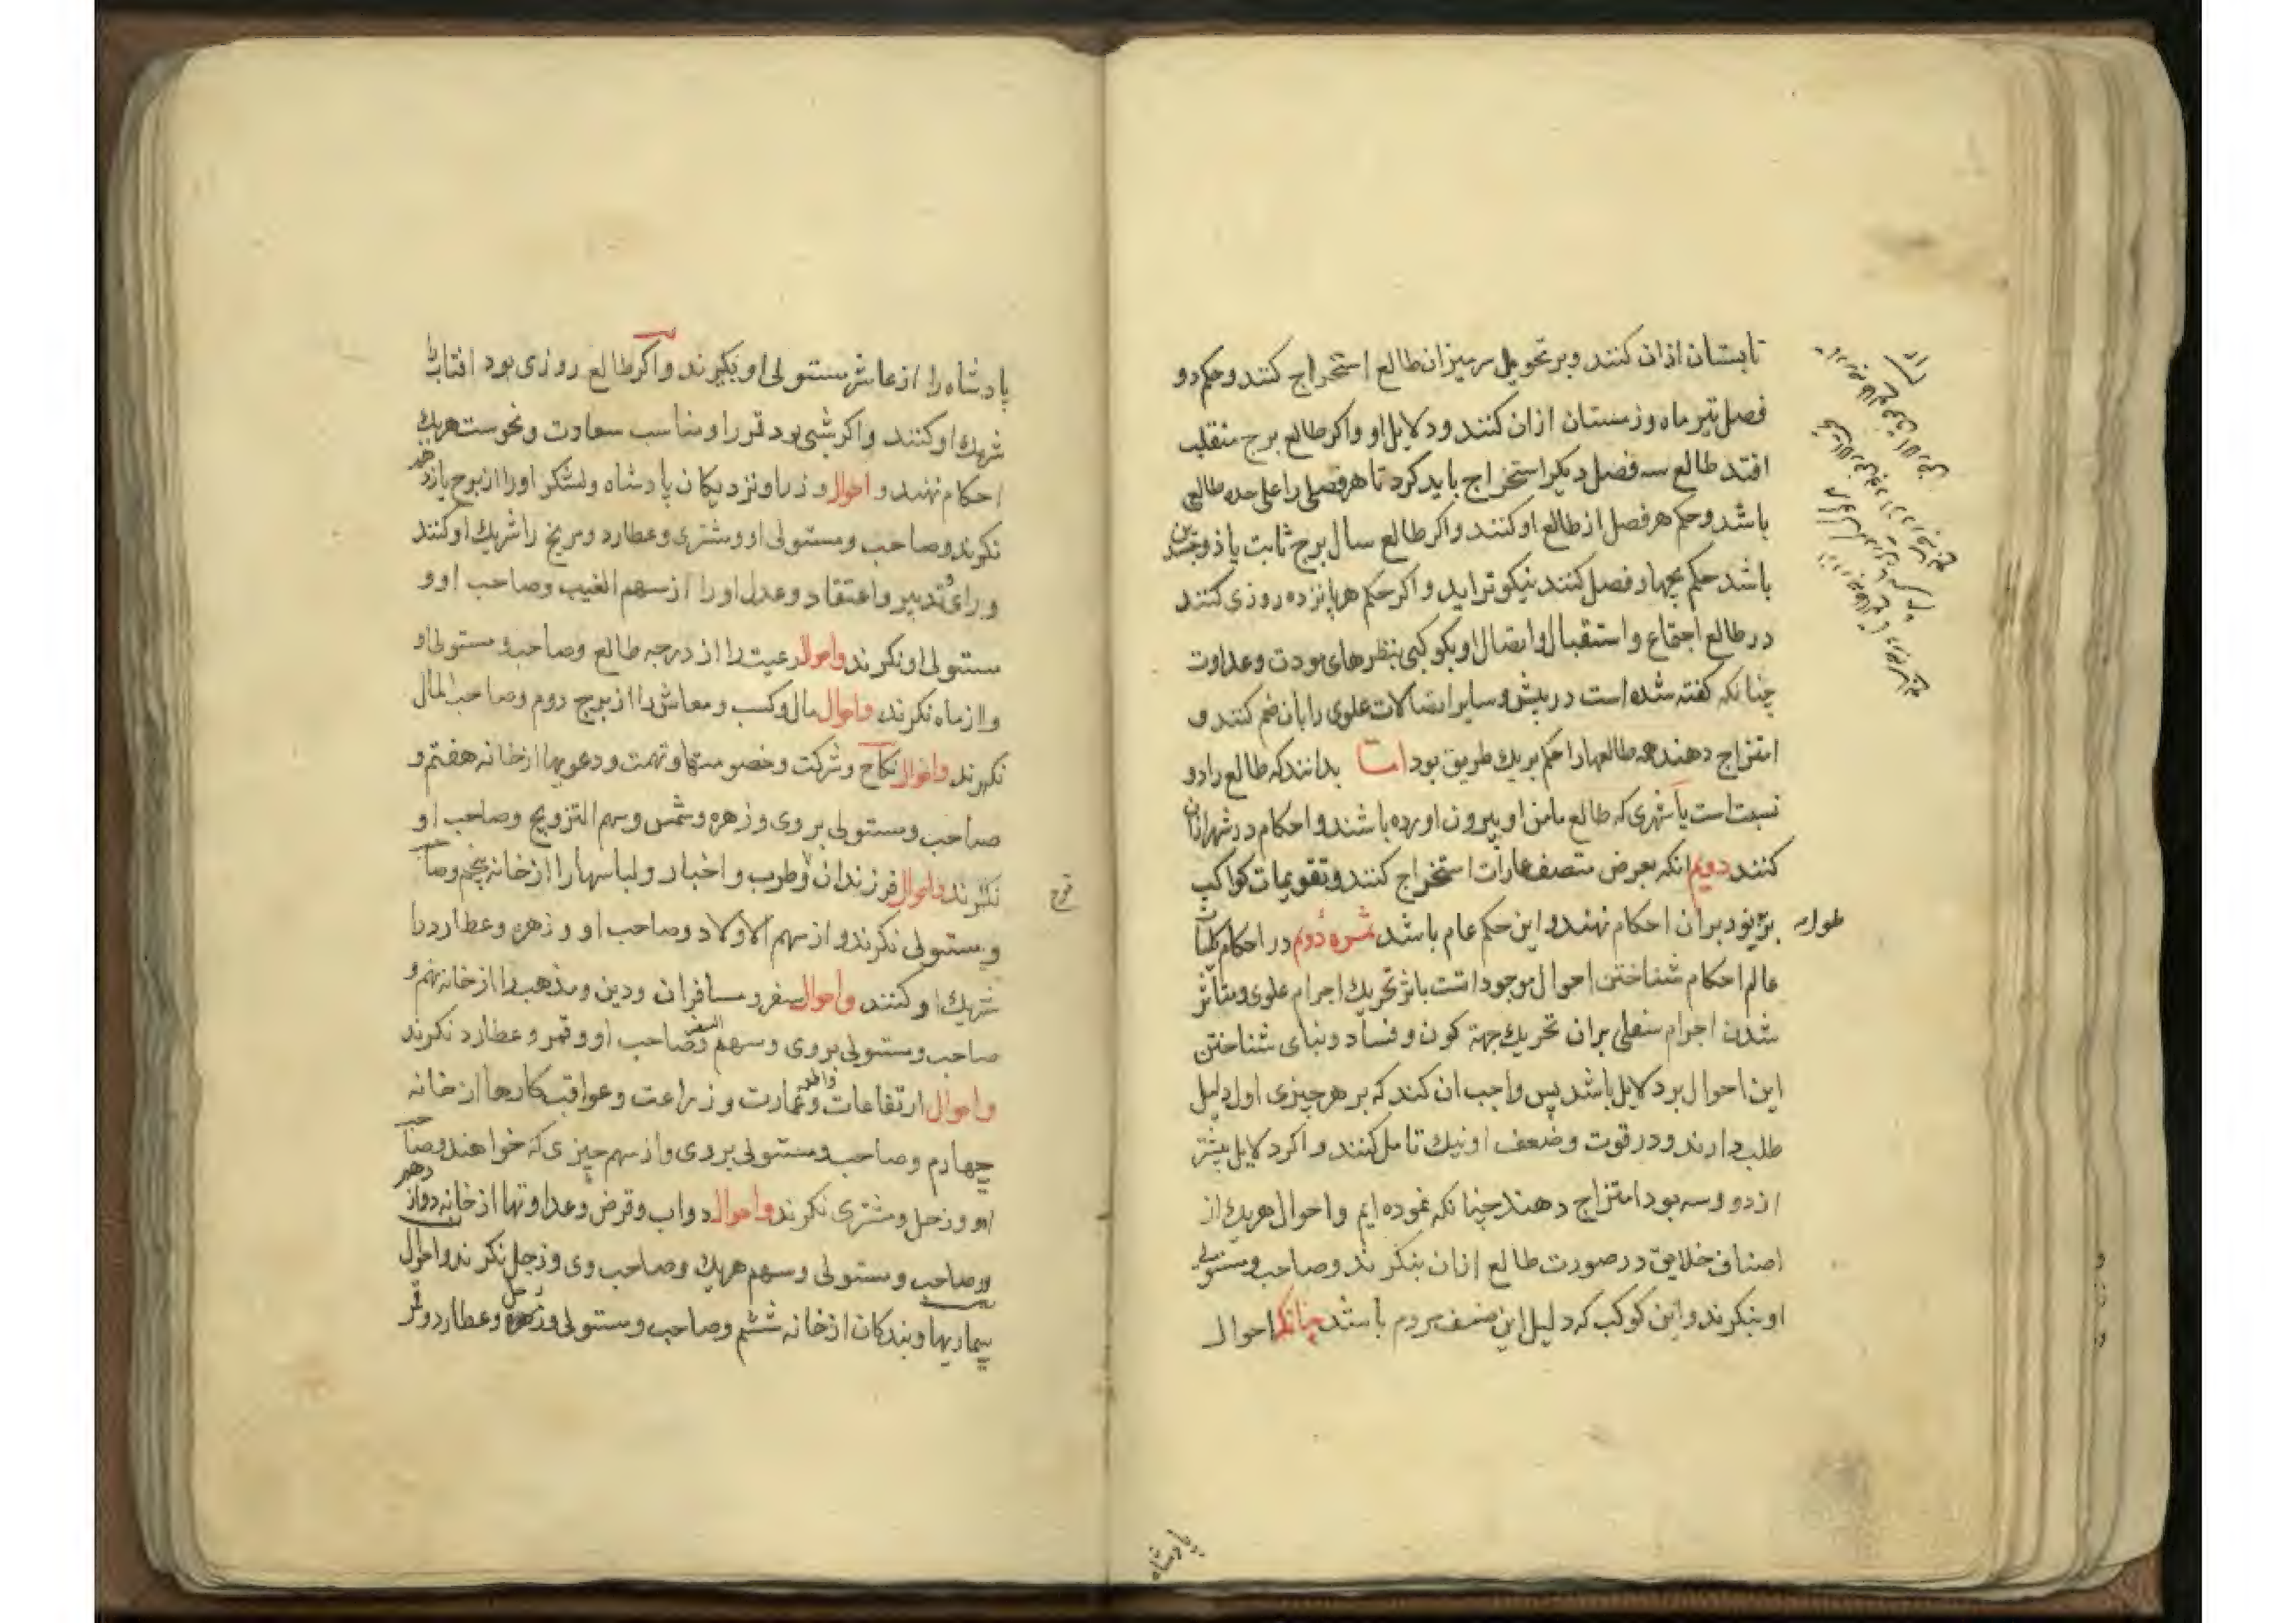 تابستان ازان کنند وبر تحویل سر میزان طالع استخراج کنند و حکم دو
فصل تیر ماه و زمستان ازان کنند و دلایل او و اکر طالع برج منقلب
افتد طالع سه فصل دیکر استخراج باید کرد تا هر فصلی را علی حده طالعی
باشد و حکم هر فصل از طالع او کنند و اکر طالع سال برج ثابت یا ذو جسدین
باشد حکم بچهار فصل کنند نیکوتر اید و اکر حکم هر پانزده روزی کنند
در طالع اجتماع و استقبال و اتصال او بکوکبی بنظرهای مودت و عداوت
چنانکه کفته شده است در پیش و سایر اتصالات علوی را بان ضم کنند و
امتزاج دهند همه طالعها را حکم بریک طریق بود اما بدانند که طالع را دو
نسبت است یا شهری که طالع مامن او بیرون اورده باشند و احکام در شهر ازان
کنند دویم انکه بعرض منتصف عمارات استخراج کنند و تقویمات کواکب
طوله
بران احکام نهند و این حکم عام باشد ثمره دوم در احکام کلیات
عالم احکام شناختن احوال موجوداتست باثر تحریک اجرام علوی و متاثر
شدن اجرام سفلی بران تحریک جهة کون و فساد و بنای شناختن
این احوال بر دلایل باشد پس واجب ان کند که بر هر چیزی اول دلیل
طلب دارند و در قوت و ضعف او نیک تامل کنند و اکر دلایل بیشتر
از دو و سه بود امتزاج دهند چنانکه نموده ایم و احوال هریک از
اصناف خلایق در صورت طالع ازان بنکرند و صاحب و مستولی
او بنکرند و این کوکب که دلیل این صنف مردم باشد چنانکه احوال
پادشاه
پادشاه را از عاشر مستولی او بکیرند و اکر طالع روزی بود افتاب را
شریک او کنند و اکر شبی بود قمر را و مناسب سعادت و نحوست هریک
احکام نهند و احوال وزرا و نزدیکان پادشاه و لشکر او را از برج یازدهم
نکرند و صاحب و مستولی او و مشتری و عطارد و مریخ را شریک او کنند
و رای و تدبیر و اعتقاد و عدل او را از سهم الغیب و صاحب او و
مستولی او نکرند و احوال رعیت را از درجه طالع و صاحب و مستولی او
و از ماه نکرند و احوال مال و کسب و معاش را از برج دوم و صاحب المال
نکرند و احوال نکاح و شرکت و خصومتها و تهمت و دعویها از خانه هفتم و
صاحب و مستولی بر وی و زهره و شمس و سهم التزویج و صاحب او
نکرند و احوال فرزندان و طرب و اخبار و لباسها را از خانه پنجم و صاحب
فرح
و مستولی نکرند و از سهم الاولاد و صاحب او و زهره و عطارد را
شریک او کنند و احوال سفر و مسافران و دین و مذهب را از خانه نهم و
صاحب و مستولی بر وی و سهم السفر و صاحب او و قمر و عطارد نکرند
و احوال ارتفاعات و عمارت و زراعت و عواقب کارها از خانه
چهارم و صاحب و مستولی بر وی و از سهم چیزی که خواهند و صاحب
او و زحل و مشتری نکرند و احوال دواب و قرض و عداوتها از خانه دوازدهم
و صاحب و مستولی و سهم هریک و صاحب وی و زحل نکرند و احوال
بیماریها و بندکان از خانه ششم و صاحب و مستولی و زحل و عطارد و قمر